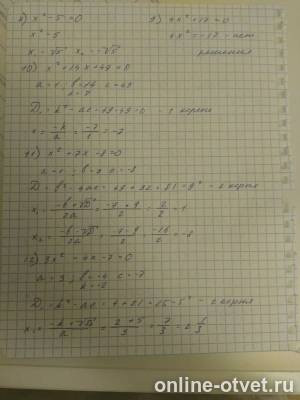 8) x² - 5 = 0
x² = 5
x₁ = √5 x₂ = -√5
9) 4x² + 17 = 0
4x² = -17 - нет
решения
10) x² + 14x + 49 = 0
a = 1 в = 14 c = 49
k = 7
D₁ = k² - ac = 49 - 49 = 0 -
x = -k/a = -7/1 = -7
11) x² + 7x - 8 = 0
a = 1 в = 7 c = -8
D = в² - 4ac = 49 + 32 = 81 = 9² - 2 корня
x₁ = -в + √D/2a = -7 + 9/2 = 2/2 = 1
x₂ = -в - √D/2a = -7 - 9/2 = -16/2 = -8
12) 3x² - 4x - 7 = 0
a = 3 в = -4 c = -7
k = -2
D₁ = k² - ac = 4 + 21 = 25 = 5² - 2 корня
x₁ = -k + √D/a = 2 + 5/3 = 7/3 = 2 1/3
online-otvet.ru